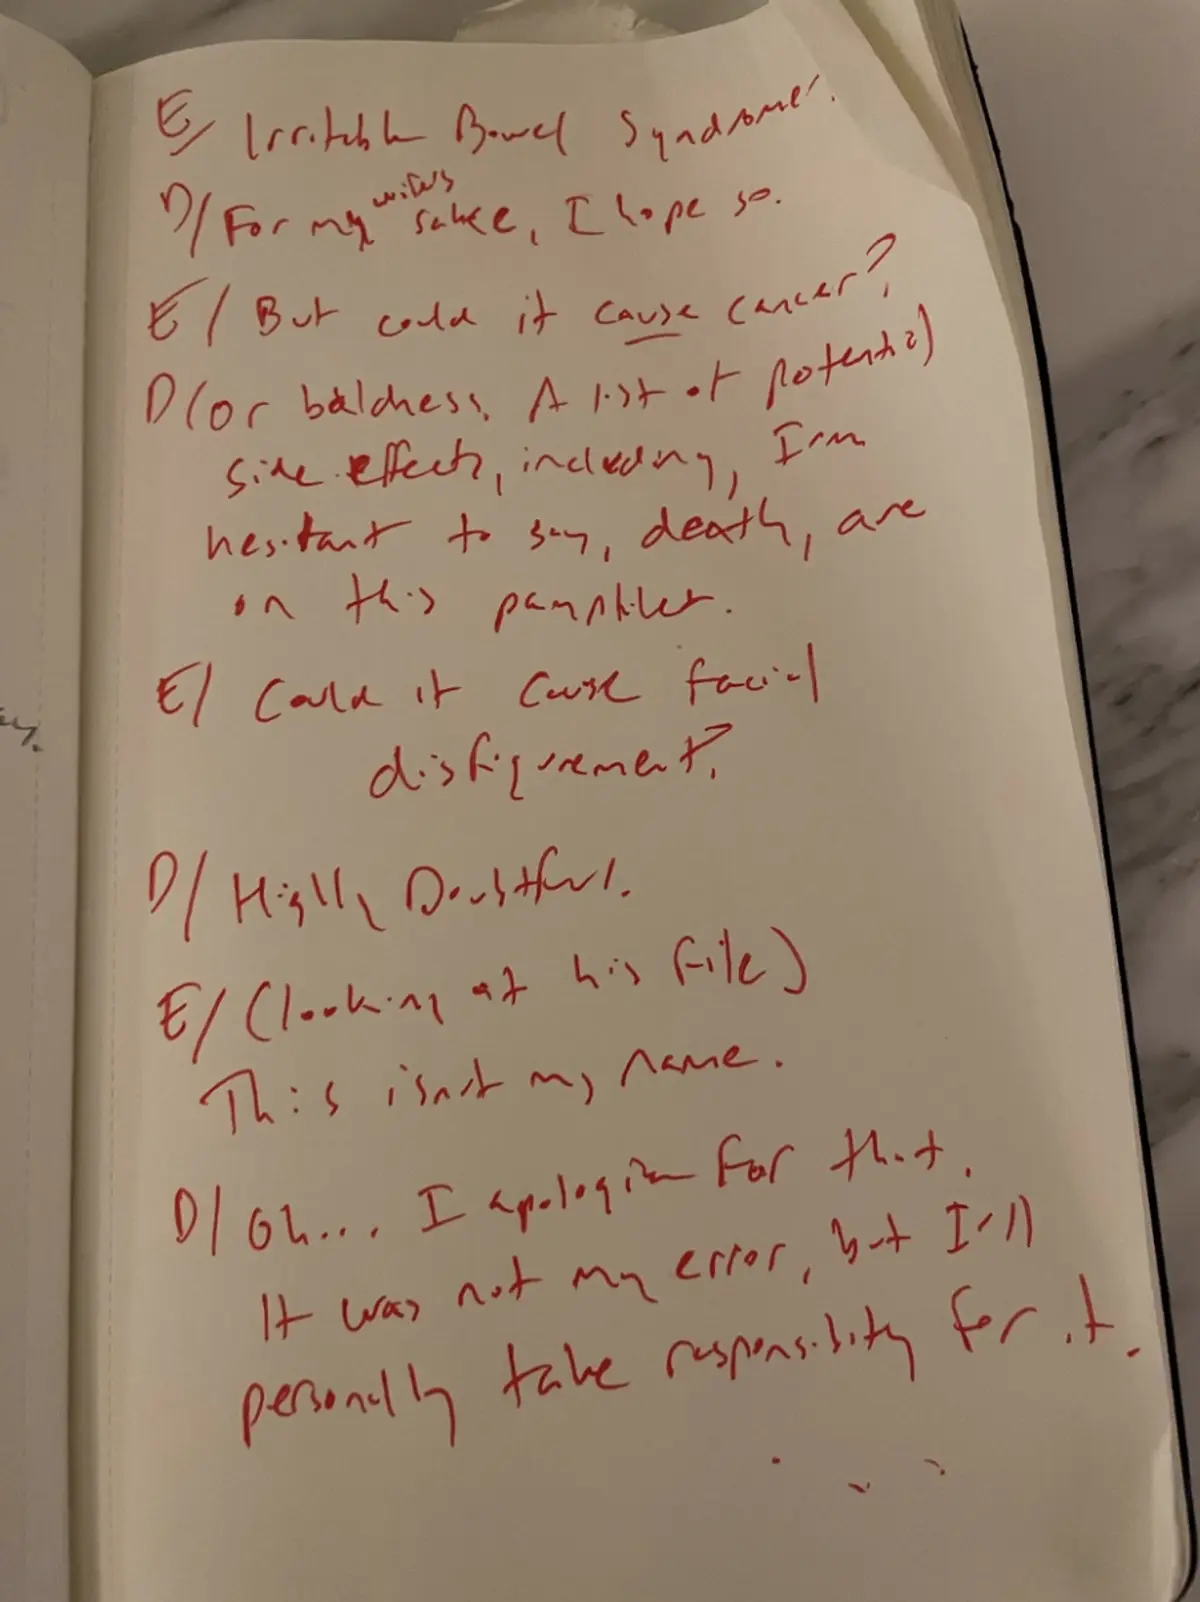 E/ Irritable Bowel Syndrome.
D/ For my wife's sake, I hope so.
E/ But could it cause cancer?
D/ or baldness. A list of potential
side effects, including, I'm
hesitant to say, death, are
on this pamphlet.
E/ Could it cause facial
disfigurement?
D/ Highly Doubtful.
E/ (looking at his file)
This isn't my name.
D/ Oh... I apologize for that.
It was not my error, but I'll
personally take responsibility for it.